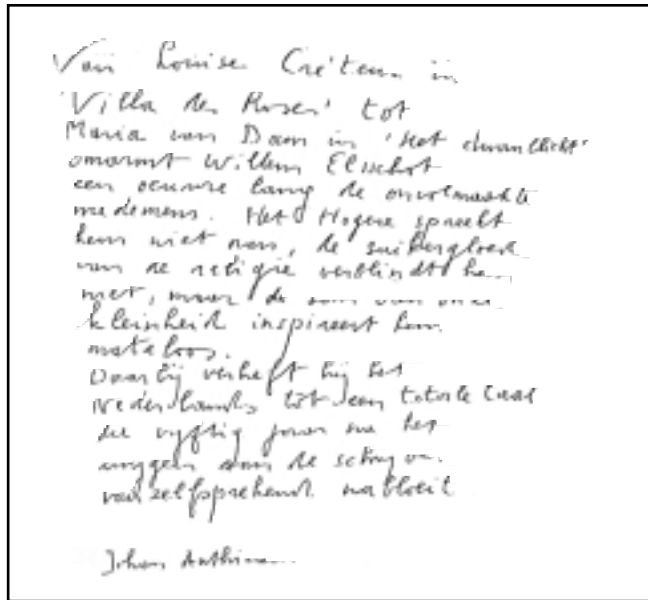 Van Louise Créteur in
'Villa des Roses' tot
Maria van Dam in 'Het dwaallicht'
omarmt Willem Elsschot
een oeuvre lang de onvolmaakte
medemens. Het Hogere spreekt
hem niet aan, de suikergloed
van de religie verblindt hem
niet, maar de som van onze
kleinheid inspireert hem
mateloos.
Daarbij verheft hij het
Nederlands tot een totale taal
die vijftig jaar na het
van de schrijver
vanzelfsprekend nabloeit
Johan